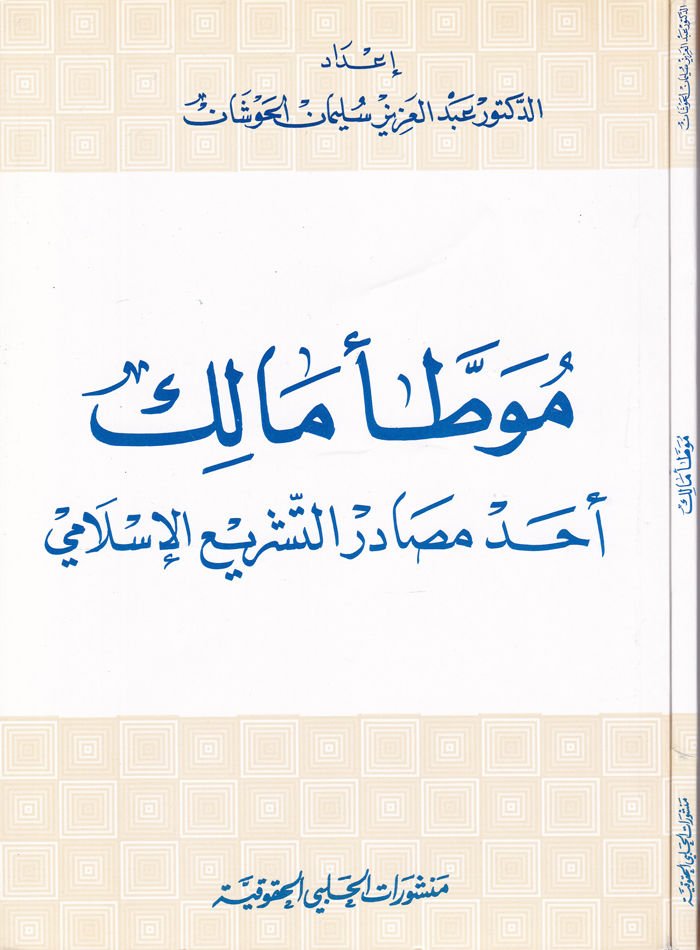 إعداد
الدكتور عبد العزيز سليمان الحوشان
مُوَطَّأ مَالِك
أحد مصادر التشريع الإسلامي
منشورات الحلبي الحقوقيّة
الدكتور عبد العزيز سليمان الحوشان
موطّأ مالك
منشورات الحلبي الحقوقيّة